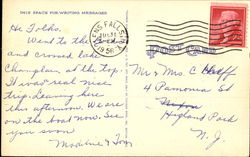 THIS SPACE FOR WRITING MESSAGES
Hi Folks.
Went to the
and crossed lake
Champlain, at the top.
It was real nice
trip. Leaving here
this afternoon. We are
on the boat now. See
you soon
GLENS FALLS, N.Y.
1956
Mr & Mrs C
4 Pamona St
Highland Park
N. J.